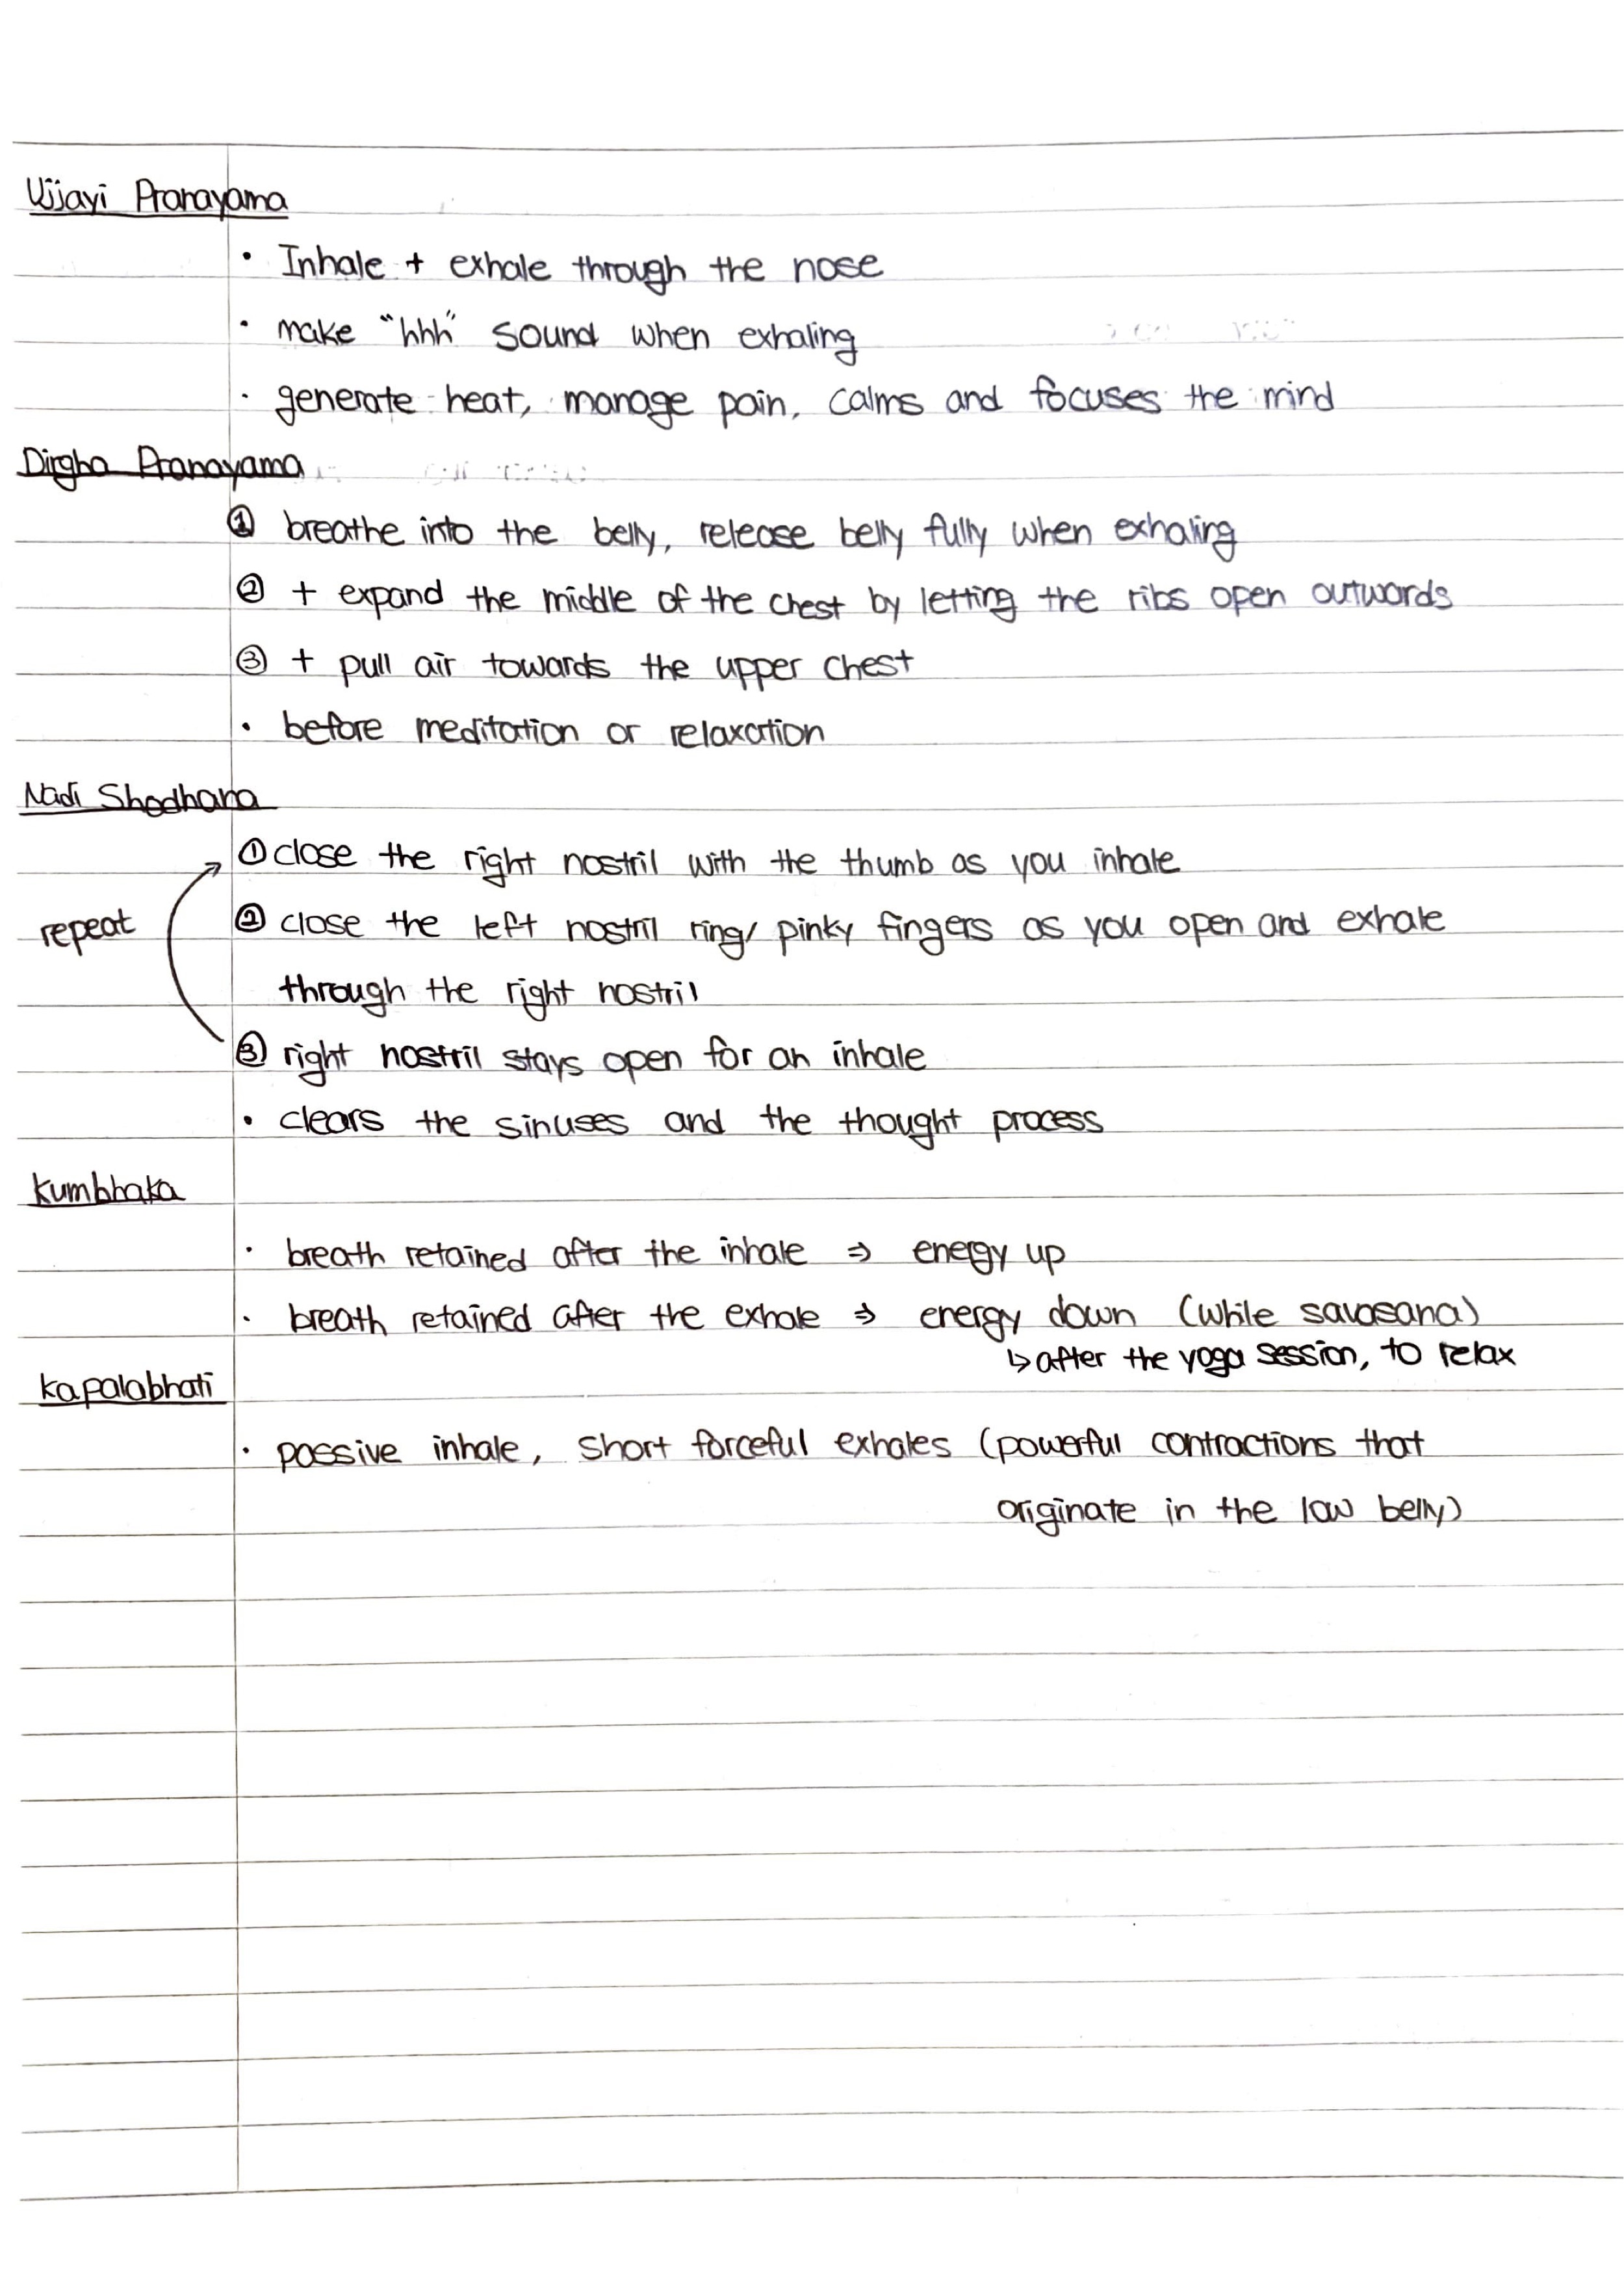 Ujjayi Pranayama
• Inhale + exhale through the nose
• make "hhh" sound when exhaling
• generate heat, manage pain, calms and focuses the mind
Dirgha Pranayama
① breathe into the belly, release belly fully when exhaling
② + expand the middle of the chest by letting the ribs open outwards
③ + pull air towards the upper chest
• before meditation or relaxation
Nadi Shodhana
① close the right nostril with the thumb as you inhale
repeat
② close the left nostril ring/ pinky fingers as you open and exhale
through the right nostril
③ right nostril stays open for an inhale
• clears the sinuses and the thought process
Kumbhaka
• breath retained after the inhale ⇒ energy up
• breath retained after the exhale ⇒ energy down (while savasana)
↳ after the yoga session, to relax
Kapalabhati
• passive inhale, short forceful exhales (powerful contractions that
originate in the low belly)